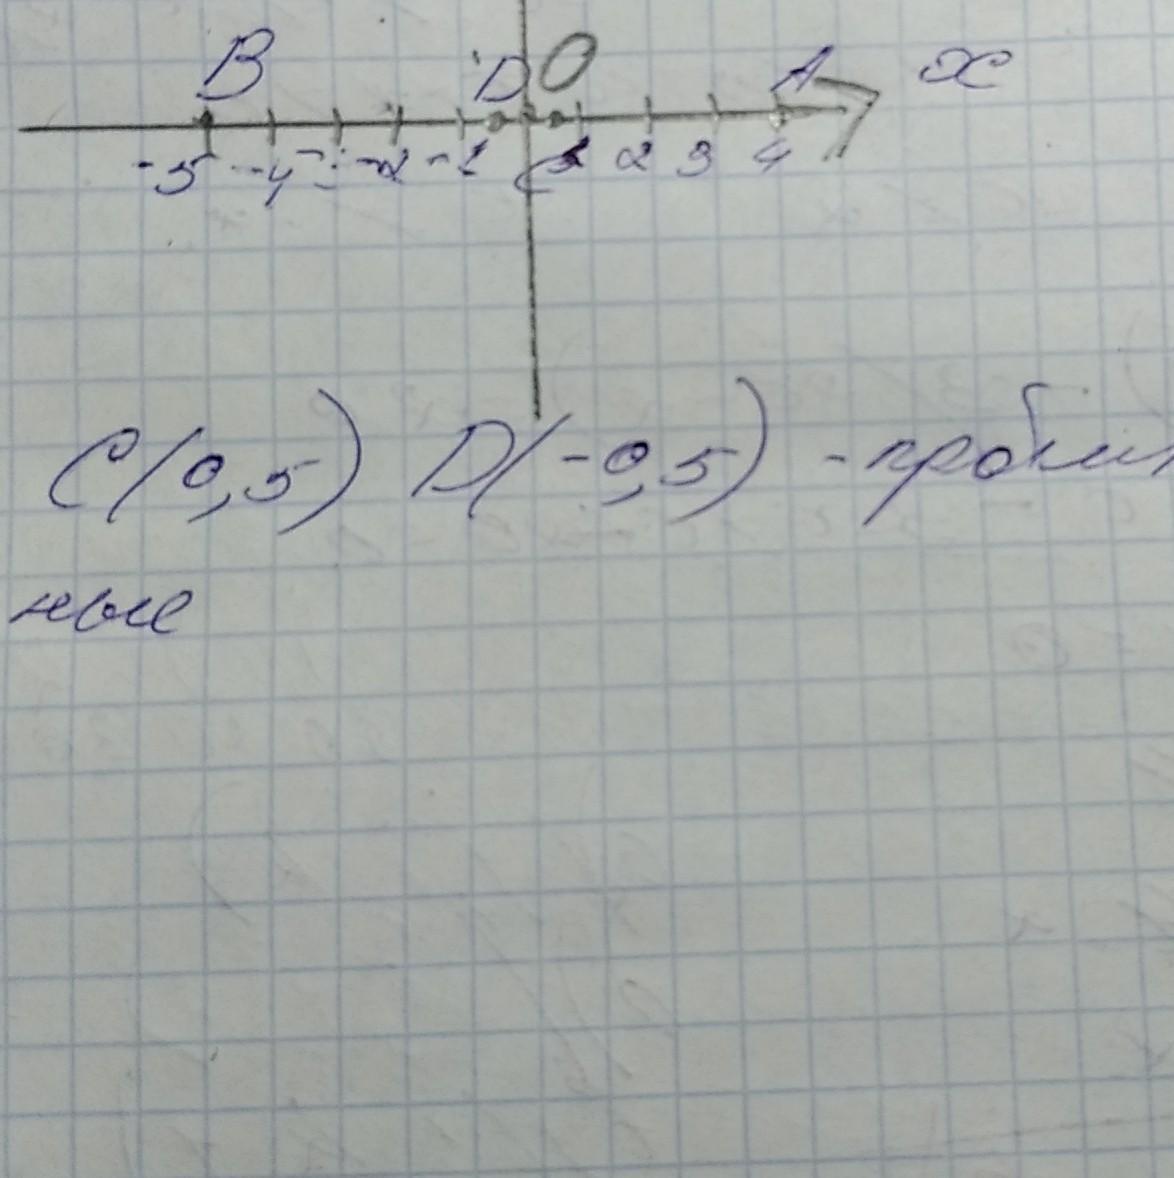 B D O A x
-5 -4 -2 -1 C 1 2 3 4
C(0,5) D(-0,5)
ные